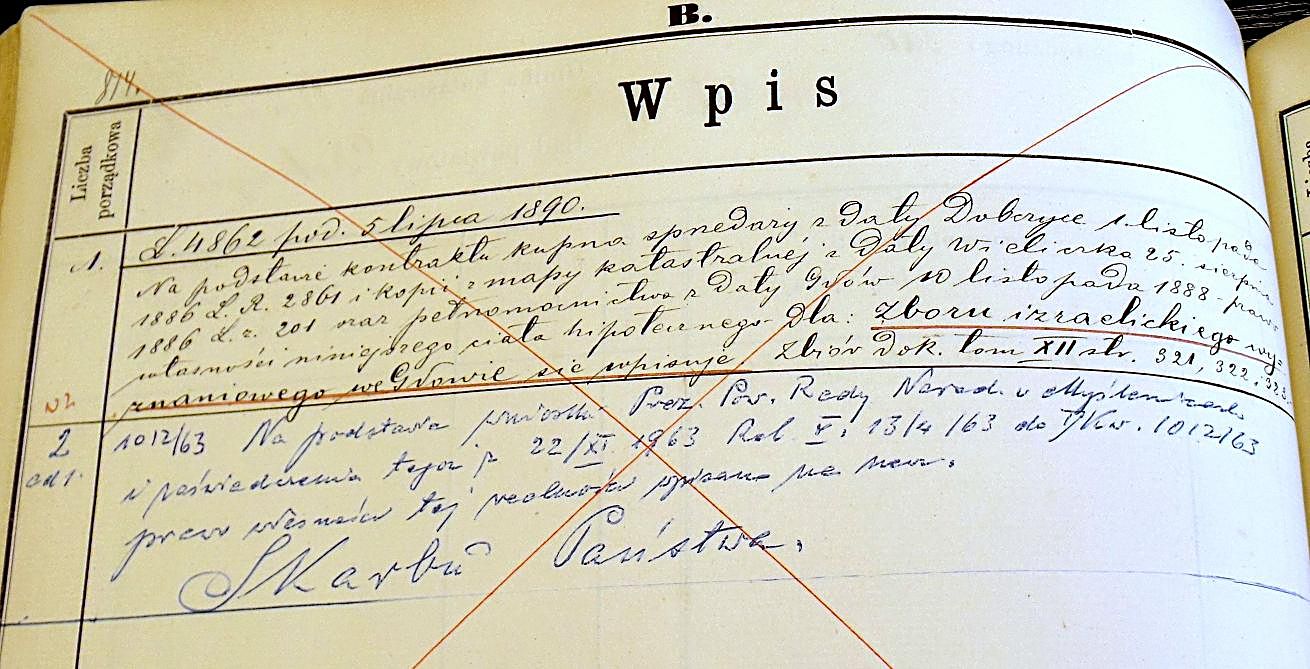 B.
814.
Wpis
Liczba
porządkowa
1.
L. 4862 pod. 5 lipca 1890.
Na podstawie kontraktu kupna sprzedaży z daty Dobczyce 1. listopada
1886 L. R. 2861 i kopii z mapy katastralnej z daty Wieliczka 25. sierpnia
1886 L. z. 201 oraz pełnomocnictwa z daty Gdów 10 listopada 1888 prawo
własności niniejszego ciała hipotecznego dla: Zboru izraelickiego wy-
znaniowego we Gdowie się wpisuje. Zbiór Dok. tom XII str. 321, 322, 323.
2
1012/63 Na podstawie wniosku Prez. Pow. Rady Narod. w Myślenicach
i poświadczenia tegoż z 22/XI 1963 Rol. V. 13/4/63 do Kw. 1012/63
prawo własności tej realności wpisano na rzecz.
Skarbu Państwa.